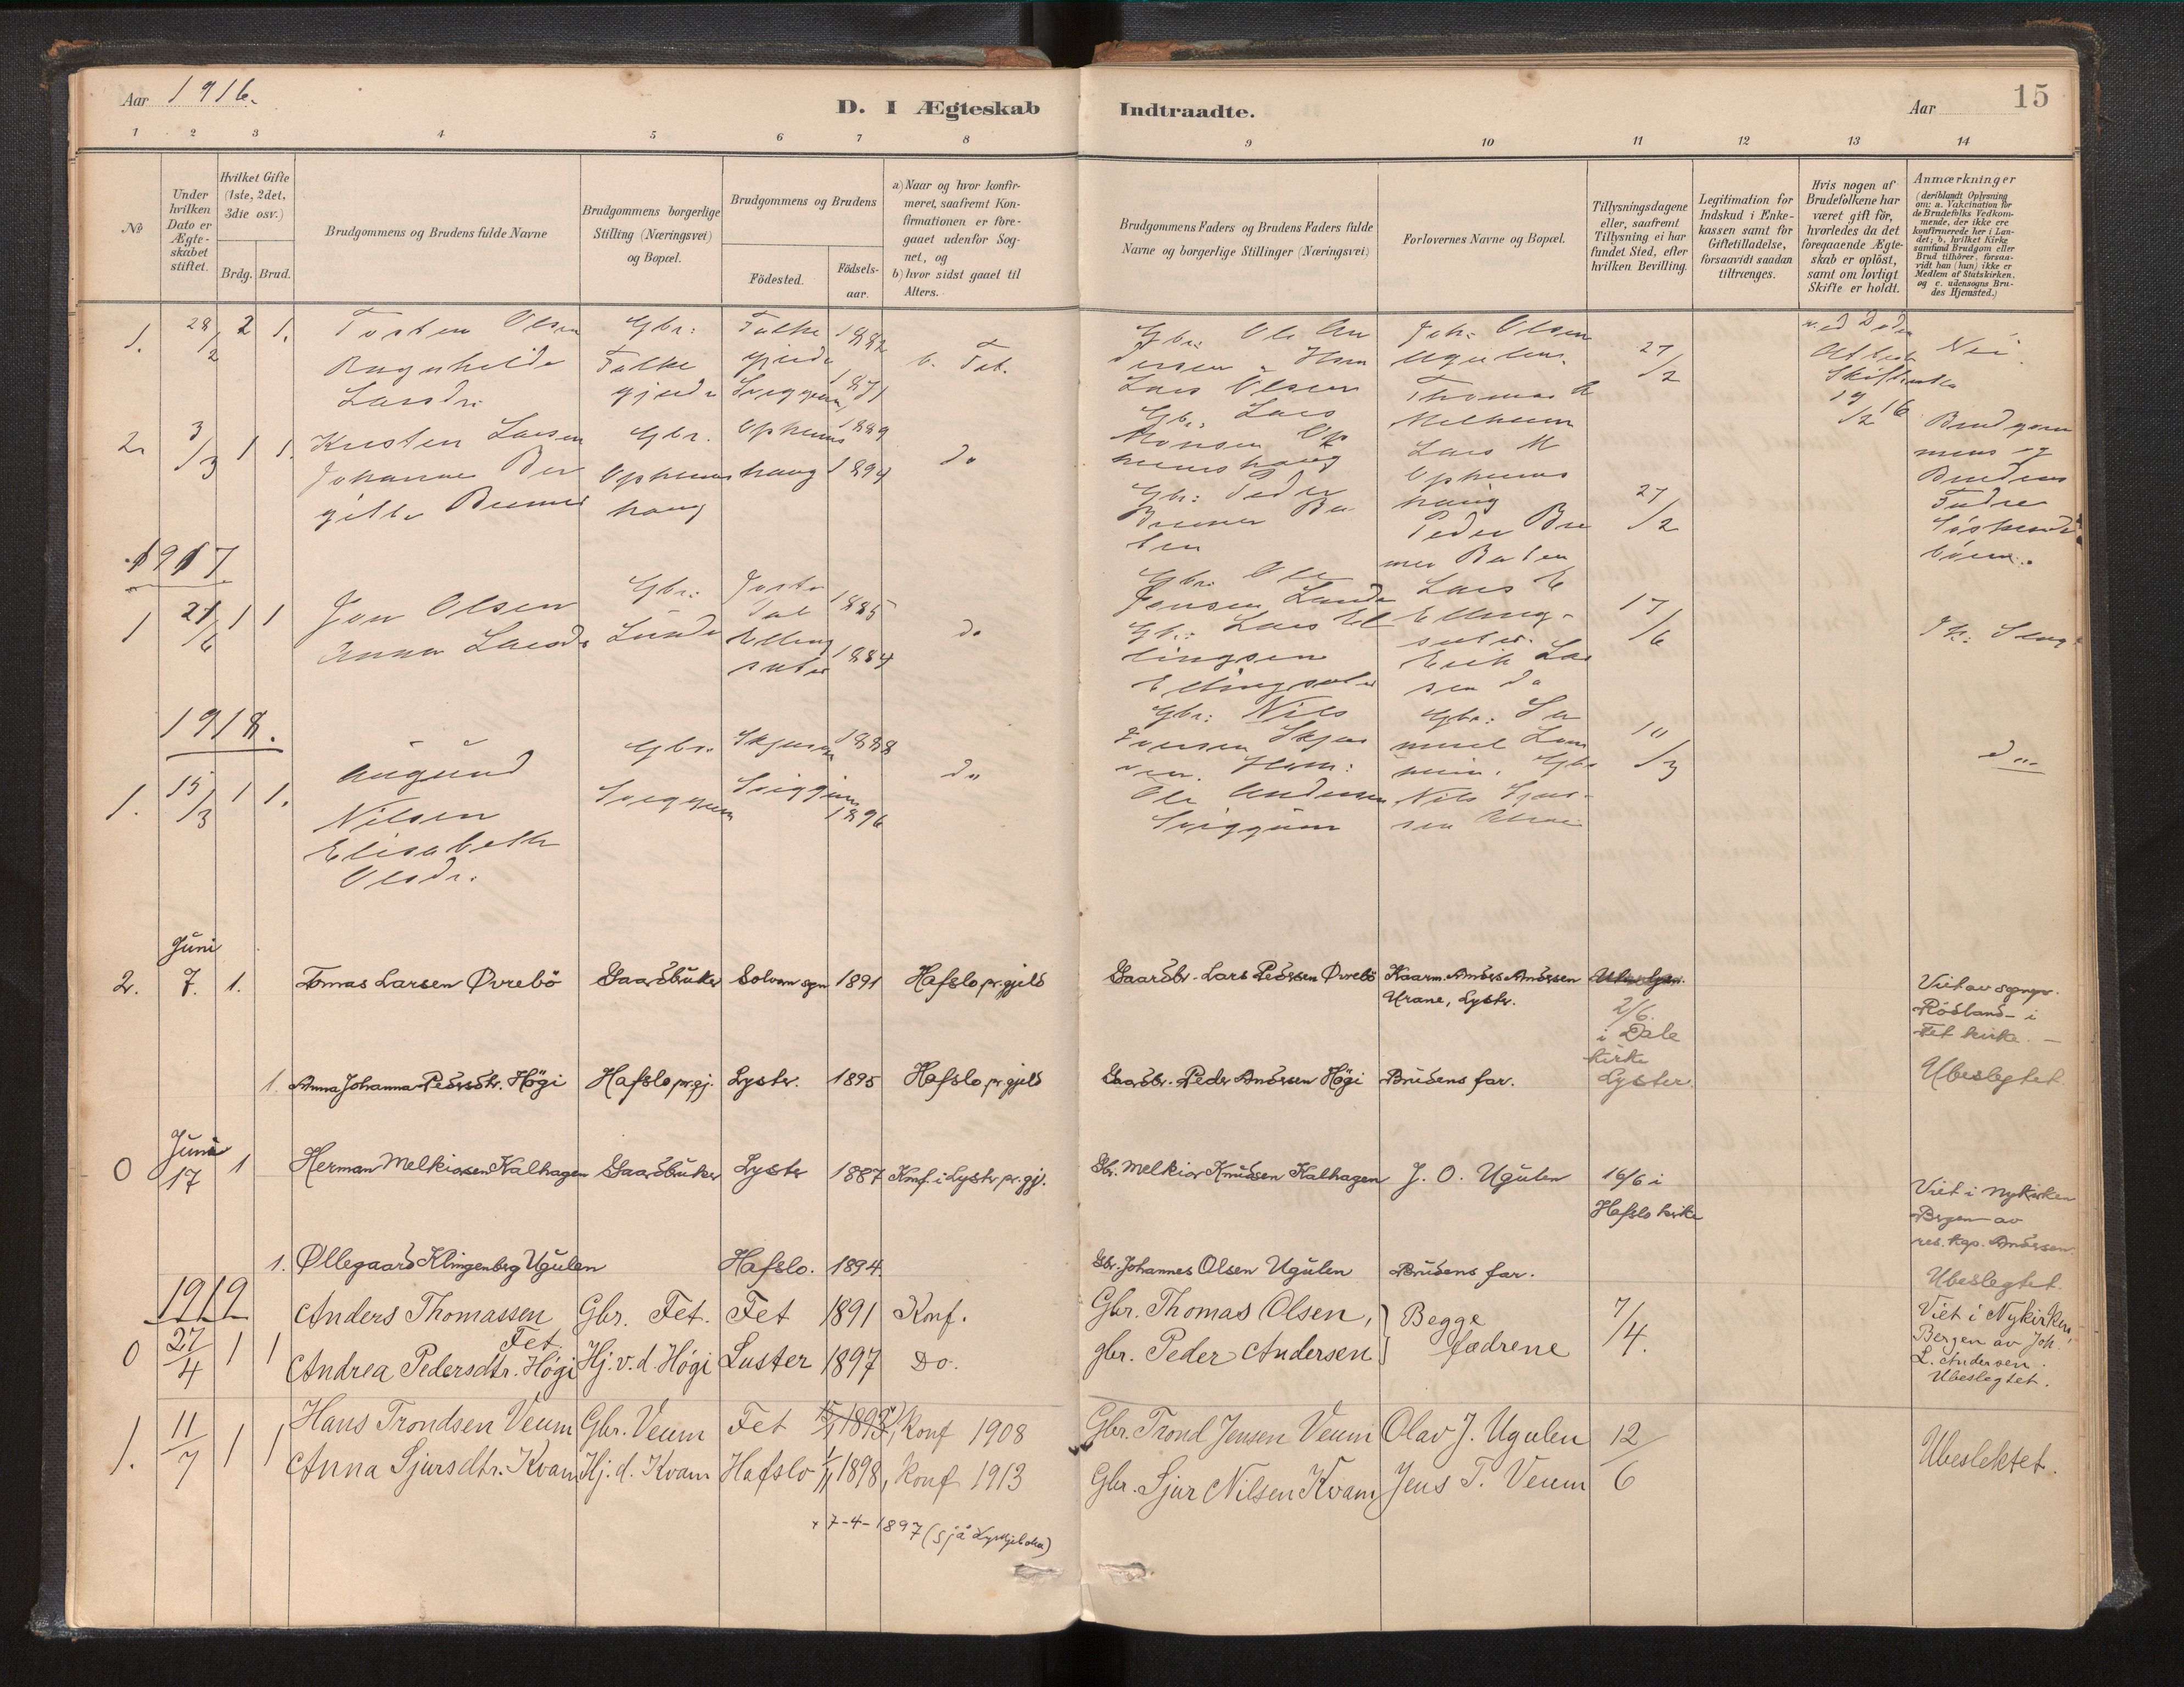 Aar 1916.
D. I Ægteskab Indtraadte.
Aar
15
1 2 3 4 5 6 7 8 9 10 11 12 13 14
No
Under hvilken Dato er Ægte-skabet stiftet.
Hvilket Gifte (1ste, 2det, 3die osv.)
Brdg. Brud.
Brudgommens og Brudens fulde Navne
Brudgommens borgerlige Stilling (Næringsvei) og Bopæl.
Brudgommens og Brudens
Födested.
Födsels-aar.
a) Naar og hvor konfir-meret, saafremt Kon-firmationen er fore-gaaet udenfor Sog-net, og
b) hvor sidst gaaet til Alters.
Brudgommens Faders og Brudens Faders fulde Navne og borgerlige Stillinger (Næringsvei)
Forlovernes Navne og Bopæl.
Tillysningsdagene eller, saafremt Tillysning ei har fundet Sted, efter hvilken Bevilling.
Legitimation for Indskud i Enke-kassen samt for Giftetilladelse, forsaavidt saadan tiltrænges.
Hvis nogen af Brudefolkene har været gift för, hvorledes da det foregaaende Ægte-skab er oplöst, samt om lovligt Skifte er holdt.
Anmærkninger
(deriblandt Oplysning om: a. Vakcination for de Brudefolks Vedkom-mende, der ikke ere konfirmerede her i Lan-det; b. hvilket Kirke samfund Brudgom eller Brud tilhörer, forsaa-vidt han (hun) ikke er Medlem af Statskirken. og c. udensogns Bru-des Hjemsted.)
1. 28/2 2 1. Tosten Olsen Gbr: 1882 b. Fet. Gbr: Ole An Joh: Olsen 27/2 ved Død Nei
Ragnhilde
Larsdr: Sviggum 1871 Lars Olsen Thomas
2. 3/3 1 1. Kristen Larsen Gbr. Ophems 1889 do Gbr: Lars Melheim 19/2 16 Brudgom
Johanne Ber Ophems haug 1894 Monsen Op Lars M mens og
gitte Bremer haug hemshaug Ophems Brudens
Gbr: Peder haug 27/2 Fædre
Bremer Ba Peder Bre Söskende
ten mer Baten börn.
1917
1 21/6 1 1 Jon Olsen Gbr: 1885 do Gbr. Ole Lars E 17/6
Anna Larsdr Lunde Elling Jensen Lunde Elling-
sæter 1884 Gbr: Lars El sæter.
lingsen Erik Lar
Ellingsæter sen do
1918.
1. 15/3 1 1. Augund Gbr. Skjeren 1888 do Gbr: Nils Gbr: Sa 10/3 do
Nilsen Sviggum Sviggum 1896 Iversen Skjer muel Lom
Elisabeth Ole Andersen heim. Gbr
Olsdr. Sviggum Nils
Juni
2. 7. 1. Tomas Larsen Øvrebö Gaardbruker Solvorn sgn 1891 Hafslo pr.gjeld Gaardbr. Lars Pedersen Øvrebö Kaarm. Anders Andersen Viet av sognepr.
Urane, Lystr. 2/6. Rödland - i
i Dale Fet kirke. -
kirke
1. Anna Johanna Pedersdtr. Högi Hafslo pr.gj. Lyster. 1895 Hafslo pr.gjeld Gaardbr. Peder Andersen Högi Brudens far. Lyster. Ubeslegtet
Juni
0 17 1 Herman Melkiorsen Kalhagen Gaardbruker Lyster 1887 Konf. i Lyster pr.gj. Gbr. Melkior Knudsen Kalhagen J. O. Ugulen 16/6 i Viet i Nykirken
Hafslo kirke Bergen av
res. kap. Andersen.
1. Øllegaard Klingenberg Ugulen Hafslo. 1894. Gbr. Johannes Olsen Ugulen Brudens far. Ubeslegtet.
1919
0 27/4 1 1 Anders Thomassen Gbr. Fet. Fet 1891 Konf. Gbr. Thomas Olsen, } Begge 7/4. Viet i Nykirken,
Fet. Bergen av Joh.
Andrea Pedersdtr. Högi Hj. v. d. Högi Luster 1897 Do. gbr. Peder Andersen fædrene L. Andersen.
Ubeslegtet.
1. 11/7 1 1 Hans Trondsen Veum Gbr. Veum Fet 1898 x) Konf 1908 Gbr. Trond Jensen Veum Olav J. Ugulen 12/6 Ubeslektet.
Anna Sjursdtr. Kvam Hj. d. Kvam Hafslo 1898, Konf 1913 Gbr. Sjur Nilsen Kvam Jens T. Veum
x 7-4-1897 (sjå